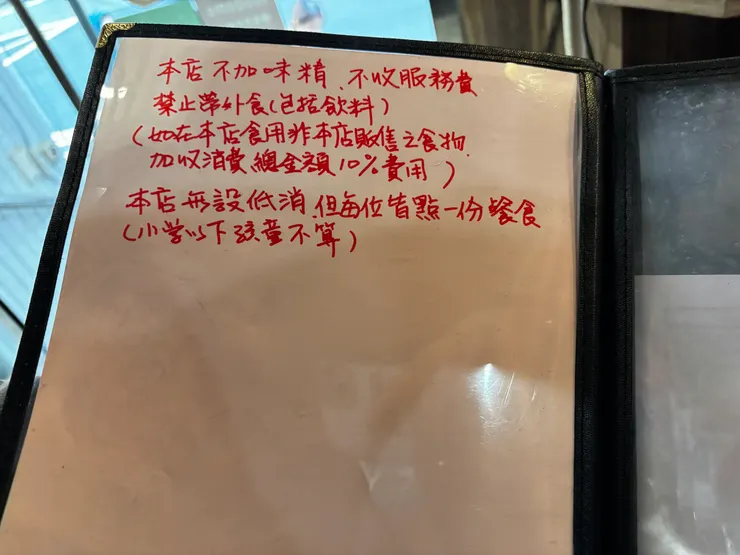 本店不加味精、不收服務費
禁止帶外食(包括飲料)
(如在本店食用非本店販售之食物
加收消費總金額10%費用)
本店無設低消,但每位皆點一份餐食
(小学以下孩童不算)